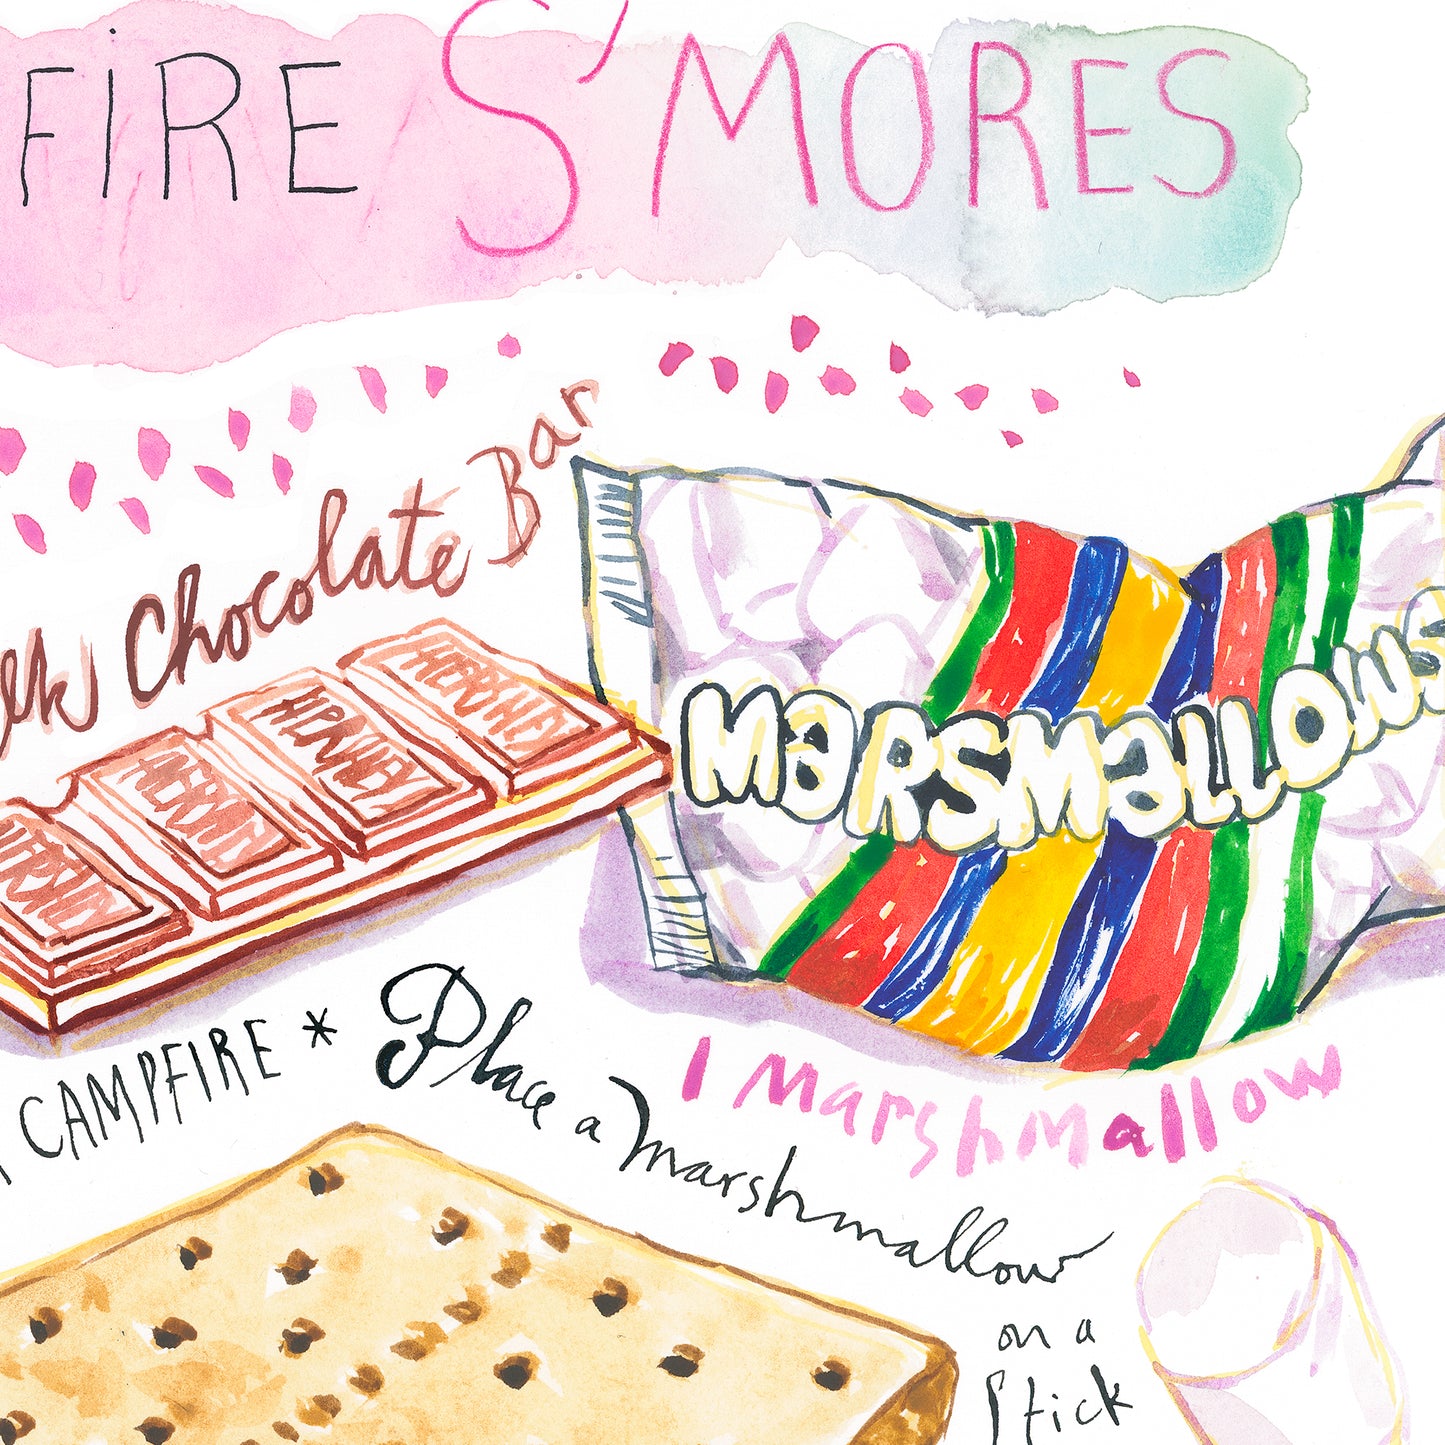 FIRE S'MORES
lk Chocolate Bar
HERSHEY
HERSHEY
HERSHEY
HERSHEY
MARSMALLOWS
CAMPFIRE * Place a Marshmallow
on a
Stick
1 Marshmallow